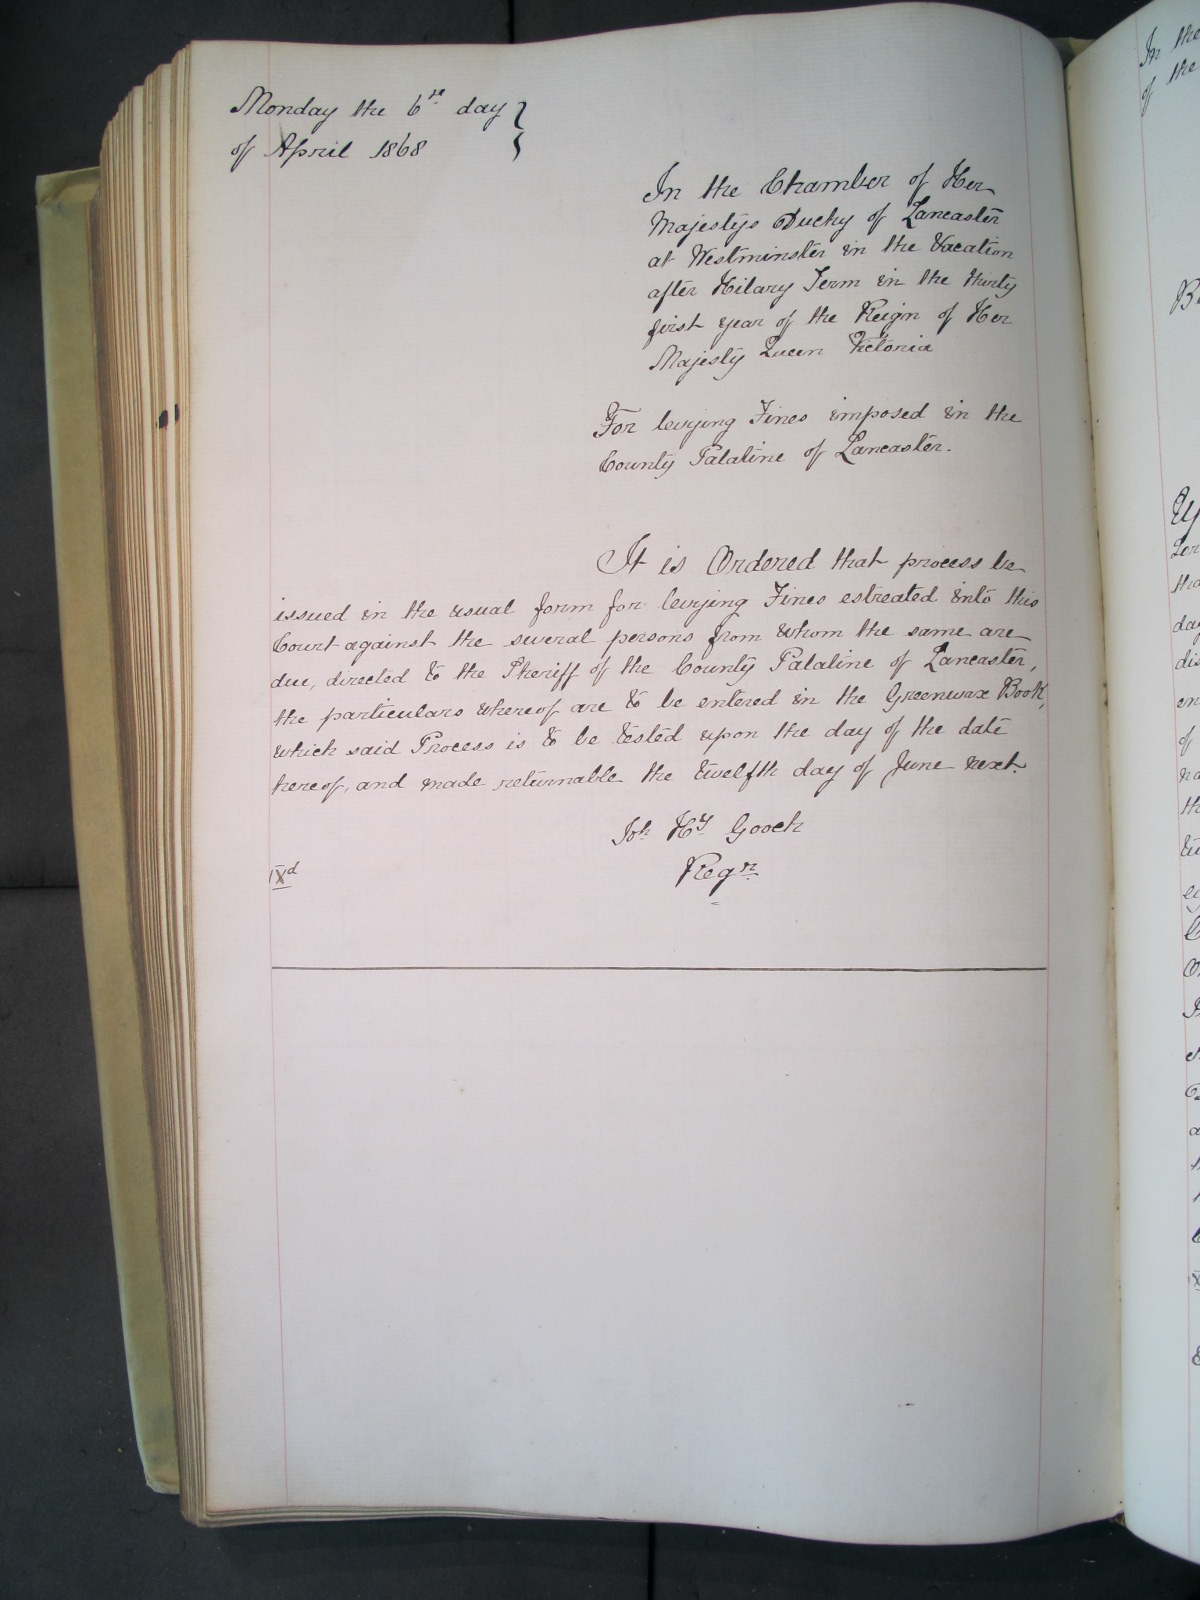 Monday the 6th day
of April 1868
In the Chamber of Her
Majestys Duchy of Lancaster
at Westminster in the Vacation
after Hilary Term in the thirty
first year of the Reign of Her
Majesty Queen Victoria
For levying Fines imposed in the
County Palatine of Lancaster.
It is Ordered that process be
issued in the usual form for levying Fines estreated into this
Court against the several persons from whom the same are
due, directed to the Sheriff of the County Palatine of Lancaster,
the particulars whereof are to be entered in the Greenwax Book,
which said Process is to be tested upon the day of the date
hereof, and made returnable the twelfth day of June next.
Joh Hy Gooch
Regr
Xd
In the
of the